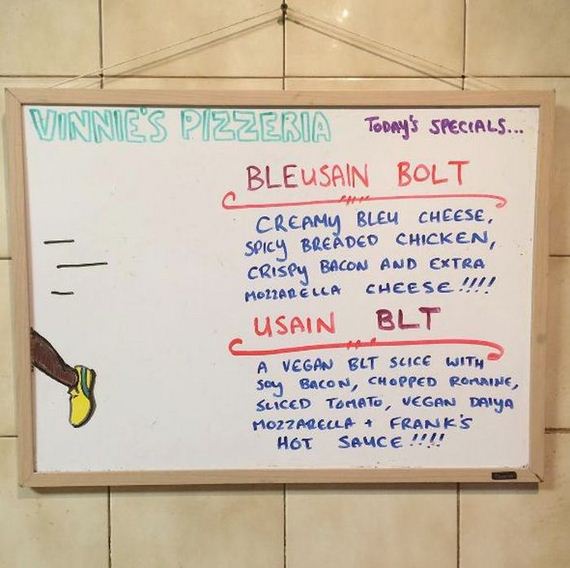 VINNIE'S PIZZERIA TODAY'S SPECIALS...
BLEUSAIN BOLT
CREAMY BLEU CHEESE,
SPICY BREADED CHICKEN,
CRISPY BACON AND EXTRA
MOZZARELLA CHEESE!!!!
USAIN BLT
A VEGAN BLT SLICE WITH
SOY BACON, CHOPPED ROMAINE,
SLICED TOMATO, VEGAN DAIYA
MOZZARELLA + FRANK'S
HOT SAUCE!!!!